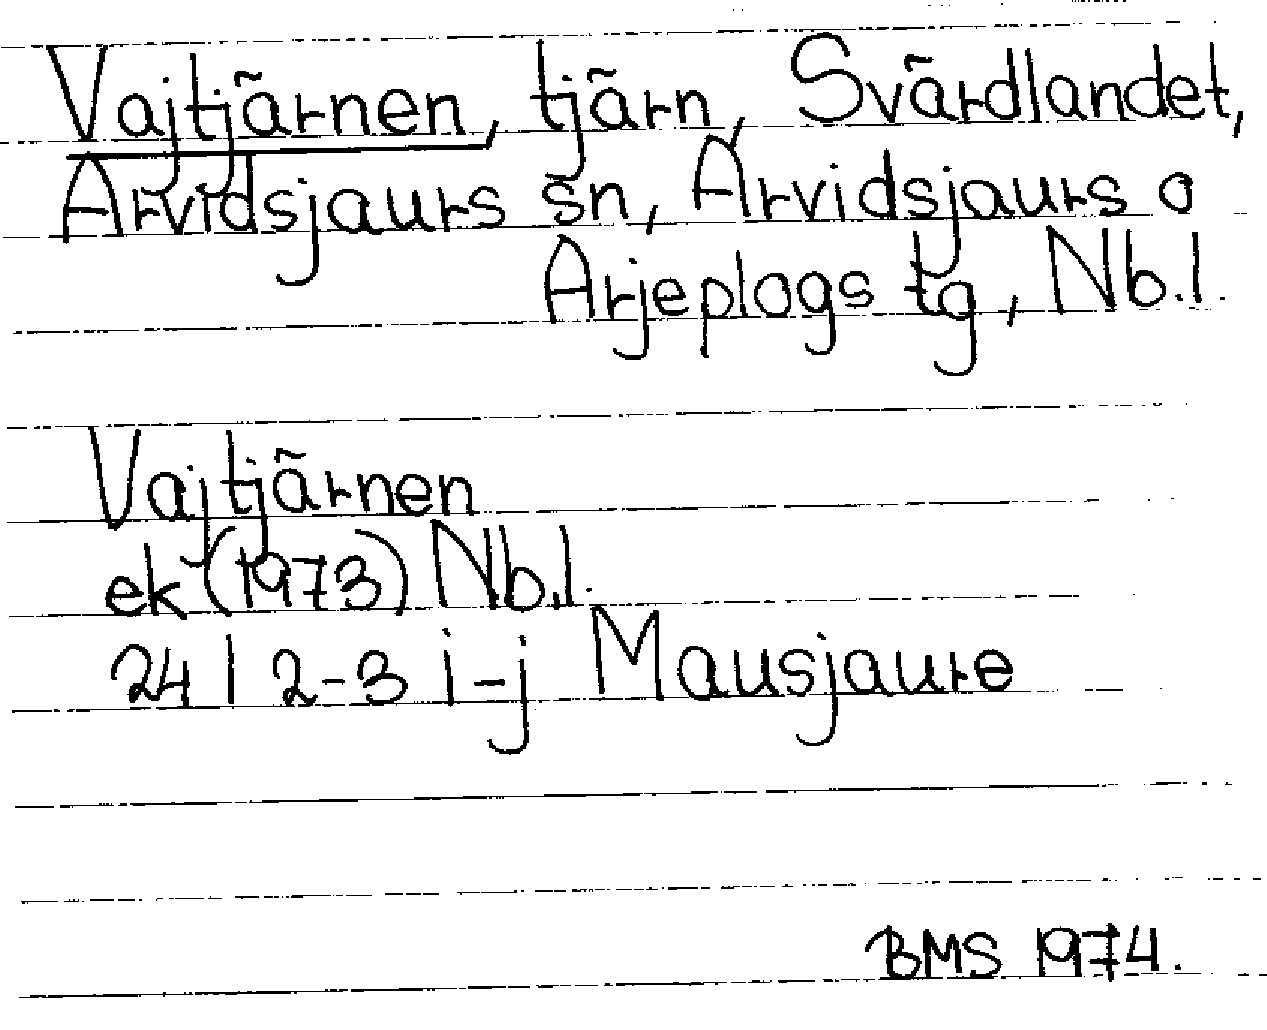 Vajtjärnen, tjärn, Svärdlandet,
Arvidsjaurs sn, Arvidsjaurs o
Arjeplogs tg, Nb.l.
Vajtjärnen
ek (1973) Nb.l.
24 I 2-3 i-j Mausjaure
BMS 1974.